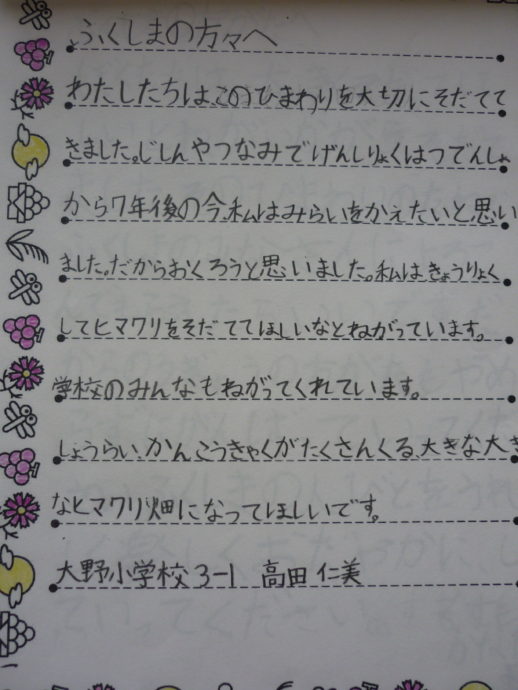 ふくしまの方々へ
わたしたちは、このひまわりを大切にそだてて
きました。じしんやつなみでげんしりょくはつでんしょ
から7年後の今、私はみらいをかえたいと思い
ました。だからおくろうと思いました。私はきょうりょく
してヒマワリをそだててほしいなとねがっています。
学校のみんなもねがってくれています。
しょうらい、かんこうきゃくがたくさんくる、大きな大き
なヒマワリ畑になってほしいです。
大野小学校3-1 高田 仁美